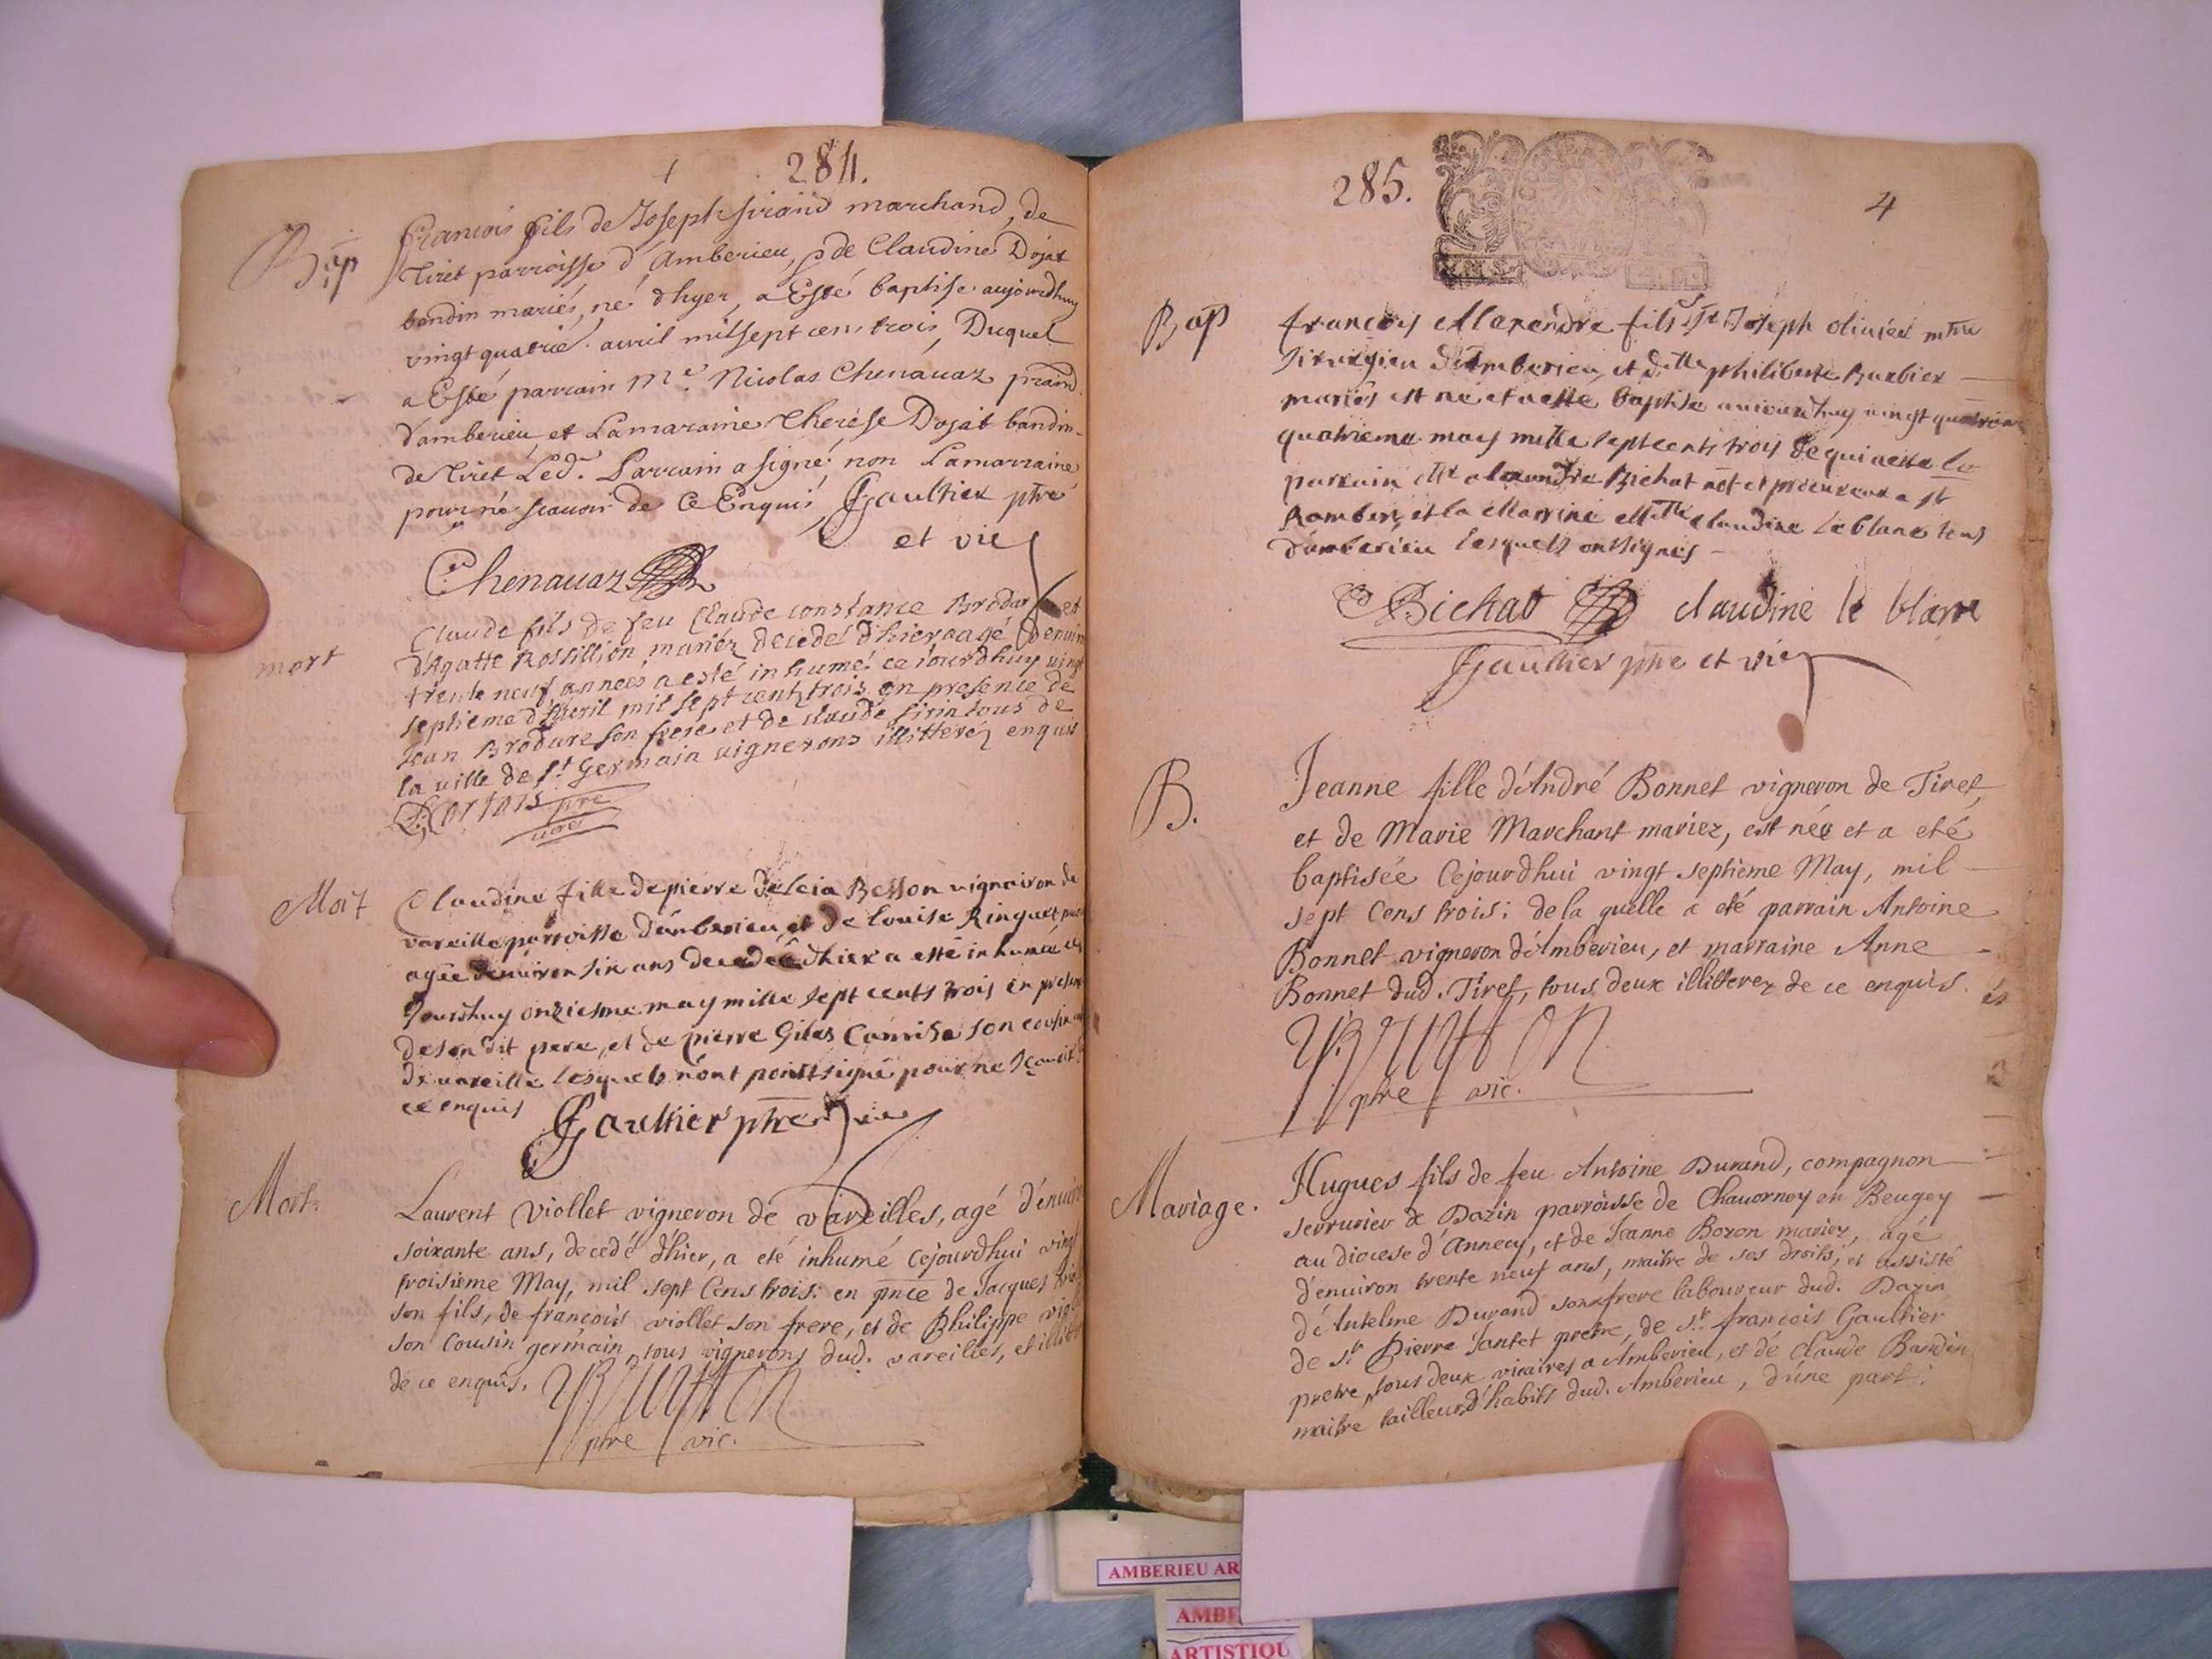 284.
Bap
francois fils de Joseph siraud marchand, de
Tiret parroisse d'Amberieu, & de Claudine Dojat
bondin mariés, né d'hyer, a Esté baptisé aujourdhuy
vingt quatrie. avril mil sept cens trois, Duquel
a Esté parrain Me. Nicolas Chenavaz
d'amberieu et La maraine Therése Dojat bondin
de Tiret Led. Parrain a signé non La marraine
pour ne scavoir de Ce Enquis, Gaultier ptre
et vic
Chenavaz
mort
Claude fils de feu Claude constance Brodar et
d'Agatte Rossillion mariéz decedé d'hier aagé denuiron
trente neuf annees a esté inhumé ce jourdhuy vingt
septieme d'Avril mil sept centz trois en presence de
Jean Brodare son frere et de claude sirin tous de
la ville de st Germain vignerons illitteréz enquis
ptre
Mort
Claudine fille de pierre Besson vigneron de
vareille parroisse d'amberieu et de louise Ringuet
agée denuiron six ans decedée dhier a esté inhumée ce
jourdhuy onziesme may mille sept cents trois en presence
de son dit pere, et de pierre Giles son cousin
de vareille lesquels n'ont point signé pour ne sçavoir
ce enquis Gaultier ptre vic
Mort.
Laurent Viollet vigneron de vareilles, agé d'enuiron
soixante ans, decedé d'hier, a eté inhumé Cejourdhui vingt
troisieme May, mil sept Cens trois: en pnce de Jacques
son fils, de francois viollet son frere, et de Philippe
son Cousin germain, tous vignerons dud. vareilles, et
de ce enquis.
ptre vic.
285.
4
Bap
françois Alexendre fils Sr Joseph olivier mtre
sirurgien d'Amberieu, et dlle philiberte Barbier
mariés est né et a esté baptisé aujourdhuy vingt
quatrieme may mille sept cents trois de qui a esté le
parrain Mr alexendre Bichat not et procureur a st
Rambert, et la Marrine Mlle claudine le blanc tous
d'amberieu lesquels ont signés
Bichat claudine le blanc
Gaultier ptre et vic
B.
Jeanne fille d'André Bonnet vigneron de Tiret,
et de Marie Marchant mariez, est née et a eté
baptisée Cejourdhui vingt septième May, mil
sept Cens trois: de la quelle a eté parrain Antoine
Bonnet vigneron d'Amberieu, et marraine Anne
Bonnet dud. Tiret, tous deux illitterez de ce enquis.
ptre vic.
Mariage.
Hugues fils de feu Antoine Durand, compagnon
serrurier de Dazin parroisse de Chavorney en Beugey
au diocese d'Annecy, et de Jeanne Bozon mariez, agé
d'enuiron trente neuf ans, maitre de ses droits, et assisté
d'Antelme Durand son frere laboureur dud. Dazin
de Sr. Pierre Jantet pretre, de Sr. françois Gaultier
pretre, tous deux vicaires a Amberieu, et de Claude Bandin
maitre tailleur d'habits dud. Amberieu, d'une part:
AMBERIEU AR
AMBE
ARTISTIQU